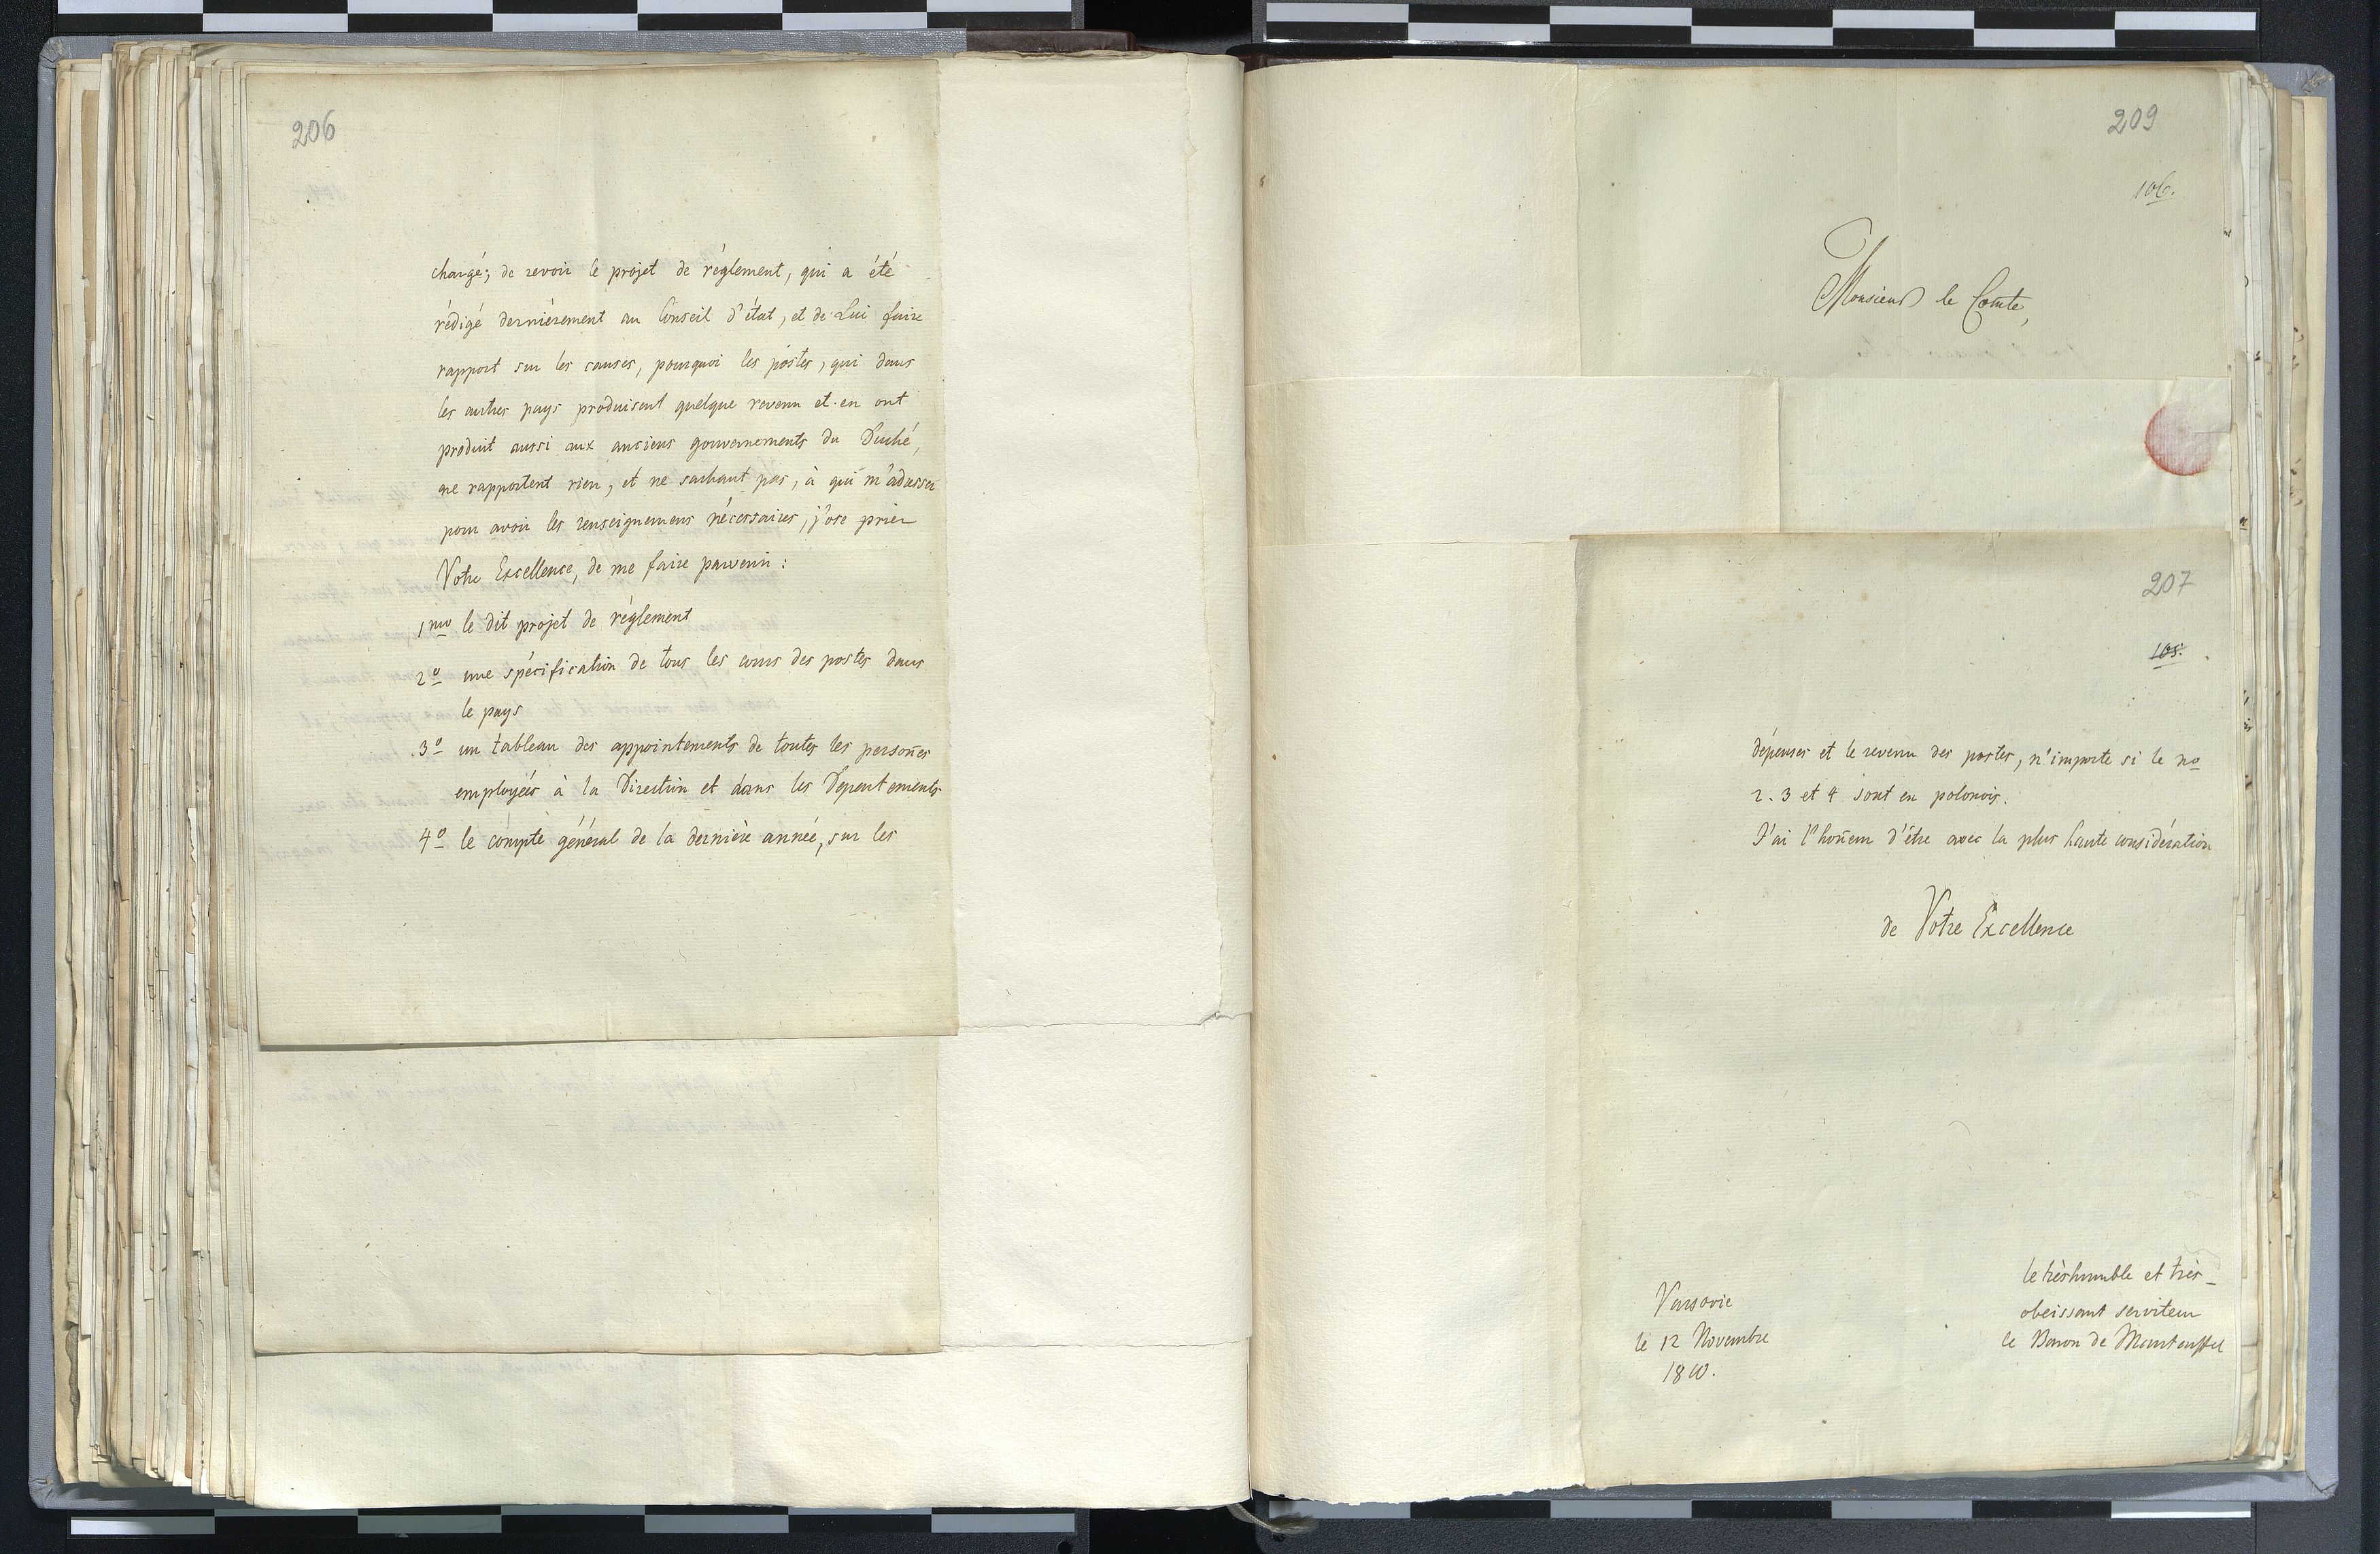 206
chargé; de revoir le projet de réglement, qui a été
rédigé dernièrement au Conseil d'état, et de Lui faire
rapport sur les causes, pourquoi les postes, qui dans
les autres pays produisent quelque revenu et en ont
produit aussi aux anciens gouvernements du Duché,
ne rapportent rien, et ne sachant pas, à qui m'adresser
pour avoir les renseignemens nécessaires, j'ose prier
Votre Excellence, de me faire parvenir:
1mo le dit projet de réglement
2o une spécification de tous les cours des postes dans
le pays
3o un tableau des appointements de toutes les persoñes
employées à la Direction et dans les Departements
4o le compte général de la dernière année, sur les
209
106.
Monsieur le Comte,
207
105.
dépenses et le revenu des postes, n'importe si le no
2. 3 et 4 sont en polonois.
J'ai l'hoñeur d'être avec la plus haute considération
de Votre Excellence
le trèshumble et très-
obeissant serviteur
le Baron de Manteuffel
Varsovie
le 12 Novembre
1810.